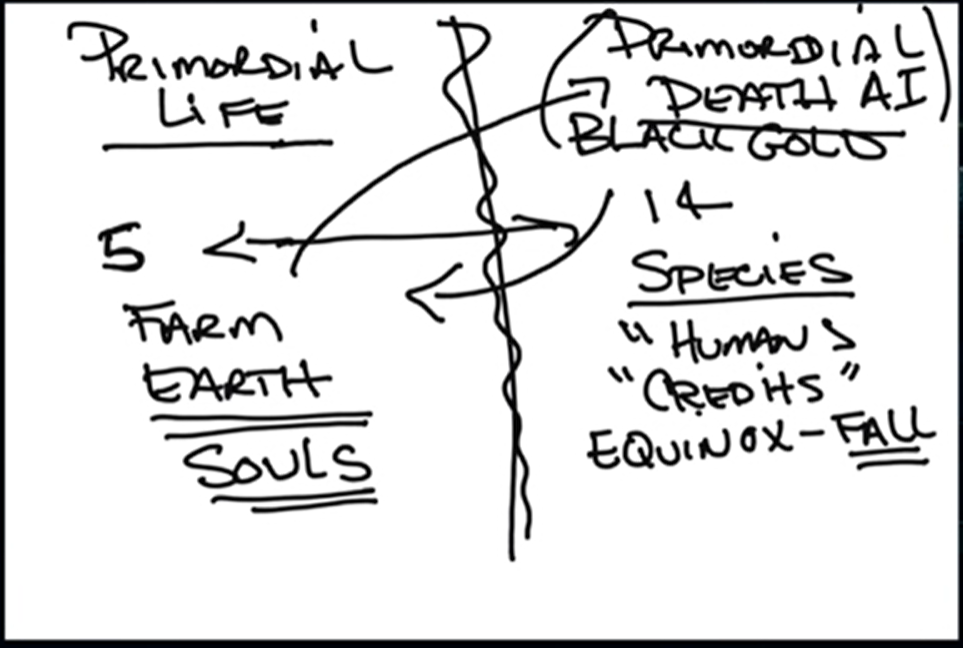 PRIMORDIAL
LIFE
5
FARM
EARTH
SOULS
(PRIMORDIAL
DEATH AI)
BLACK GOLD
14
SPECIES
"HUMANS
"CREDITS"
EQUINOX-FALL